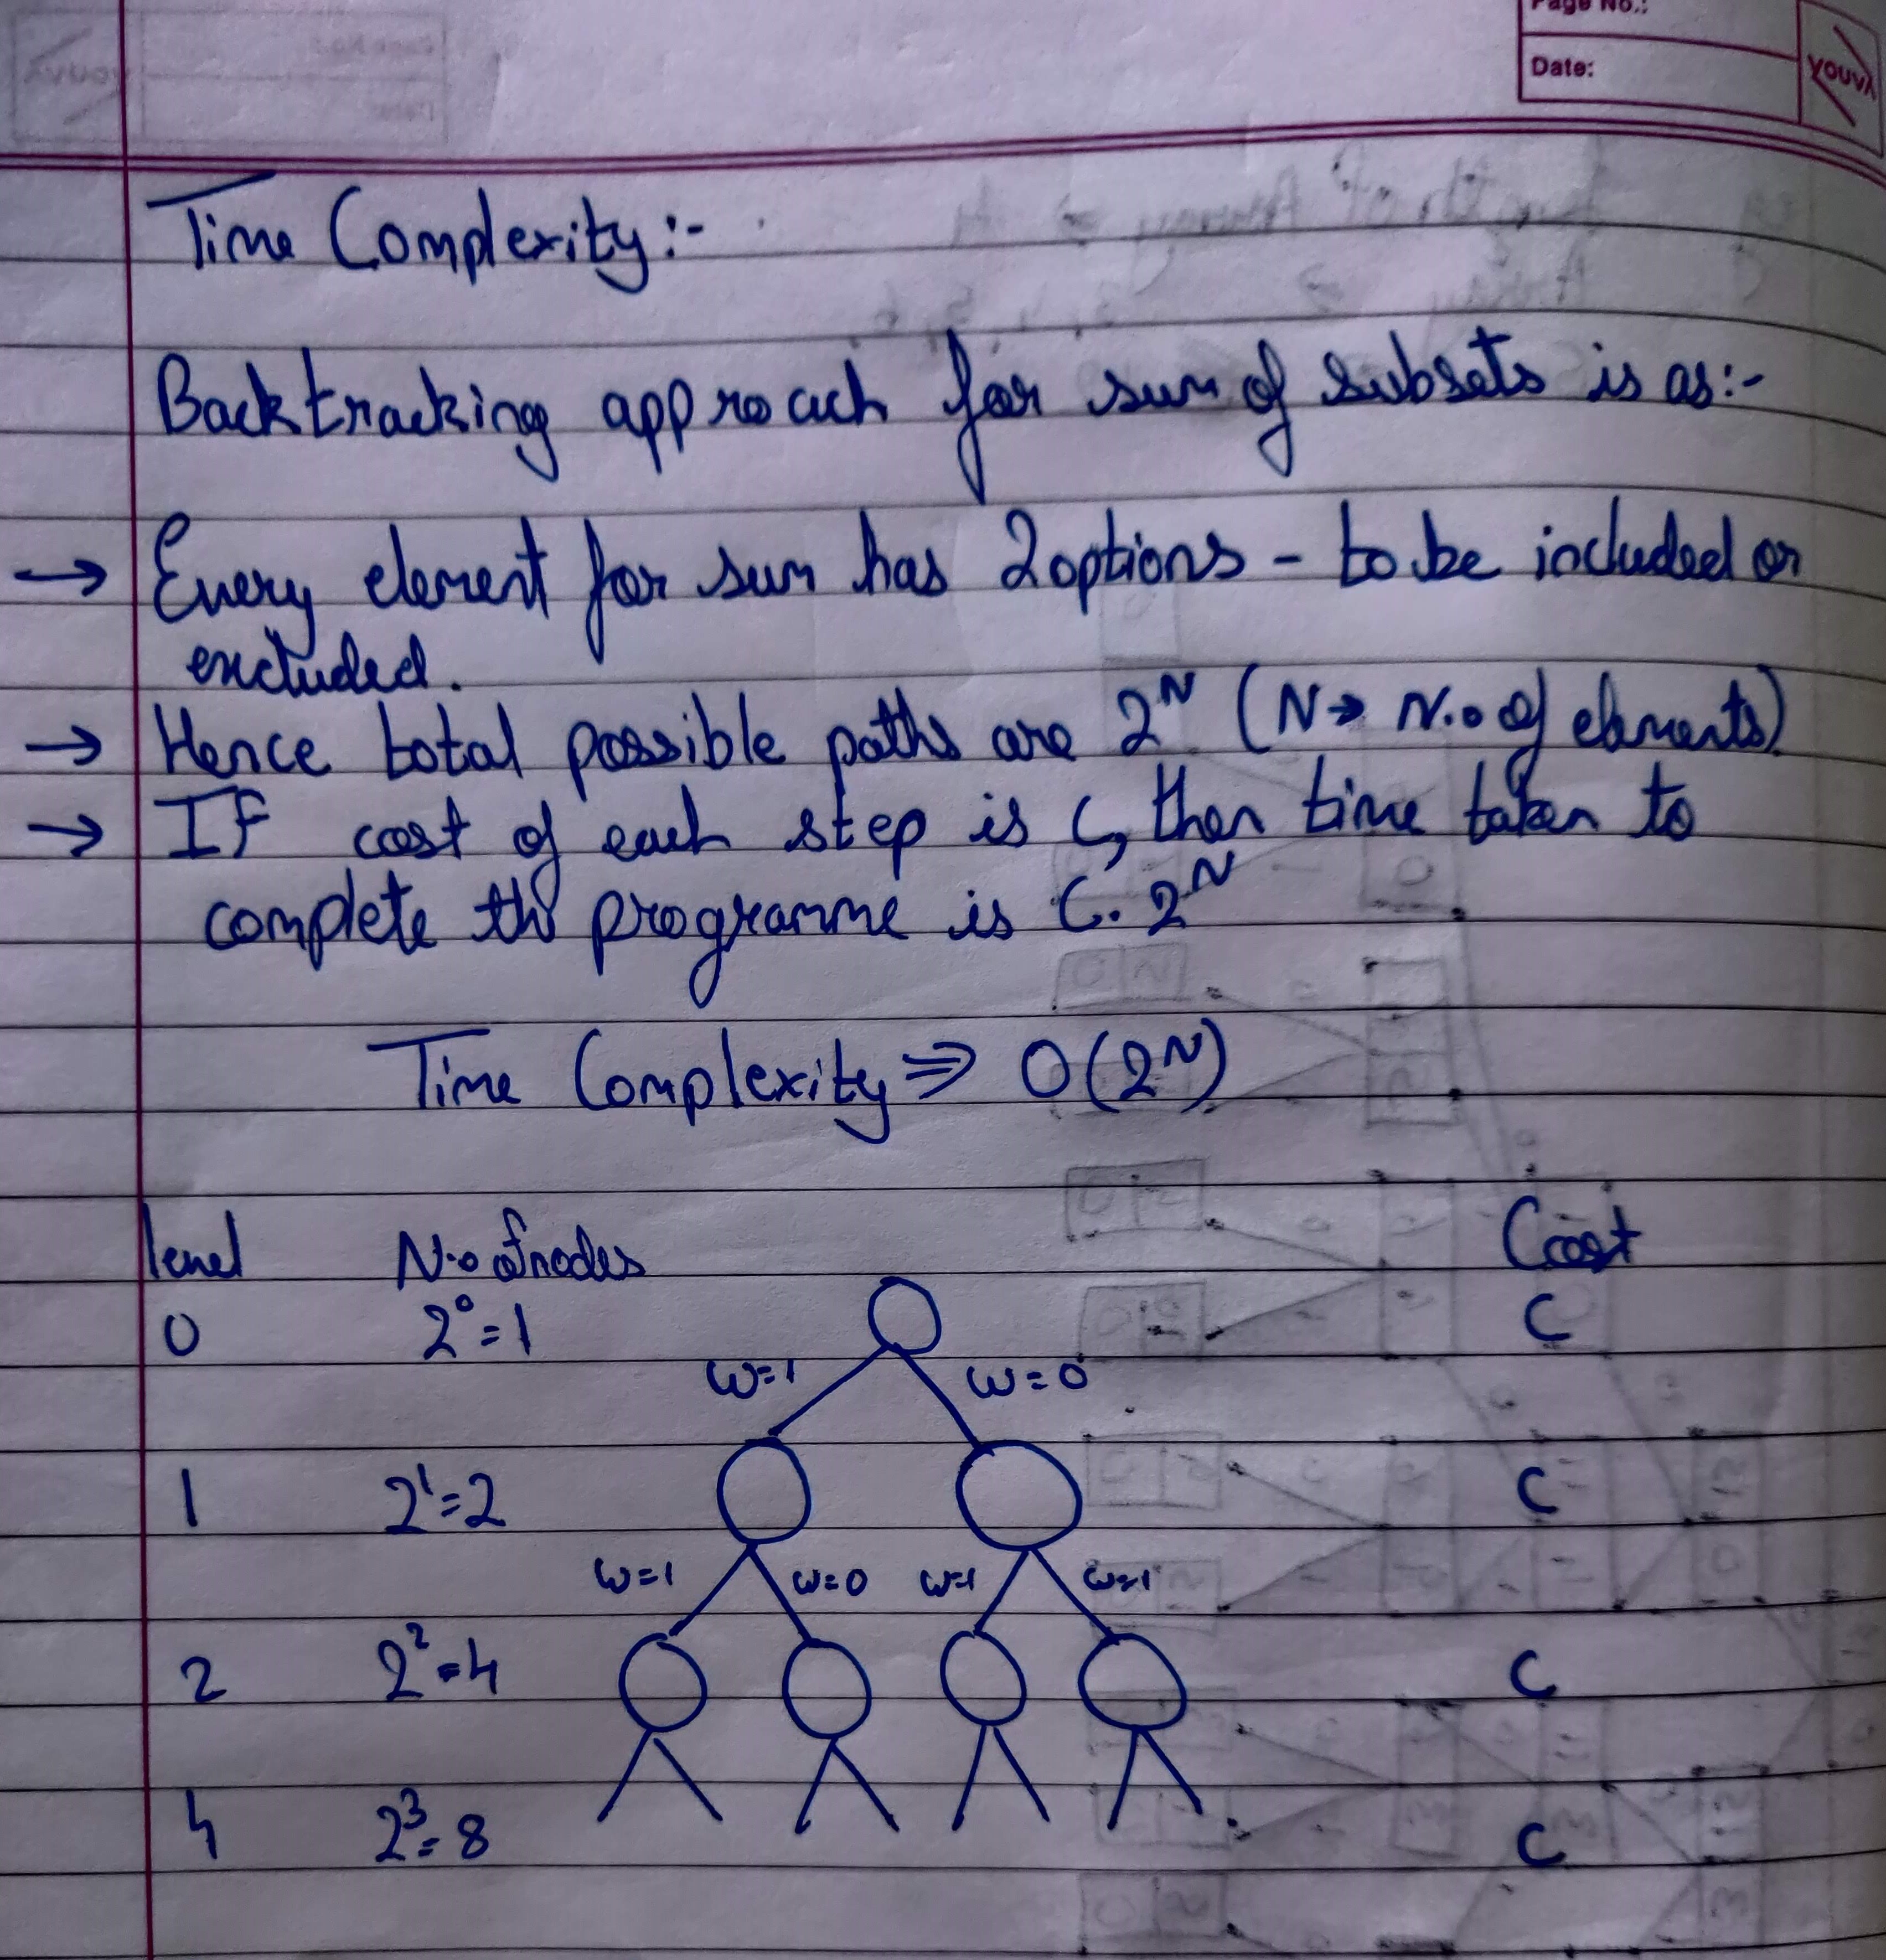 Page No.:
Date:
YOUVA
Time Complexity:-
Backtracking approach for sum of subsets is as:-
→ Every element for sum has 2 options - to be included or
excluded.
→ Hence total possible paths are 2^N (N→ N.o of elements)
→ IF cost of each step is C, then time taken to
complete the programme is C. 2^N
Time Complexity ⇒ O(2^N)
level N.o of nodes Cost
0 2^0=1 C
w=1 w=0
1 2^1=2 C
w=1 w=0 w=1 w=1
2 2^2=4 C
4 2^3=8 C